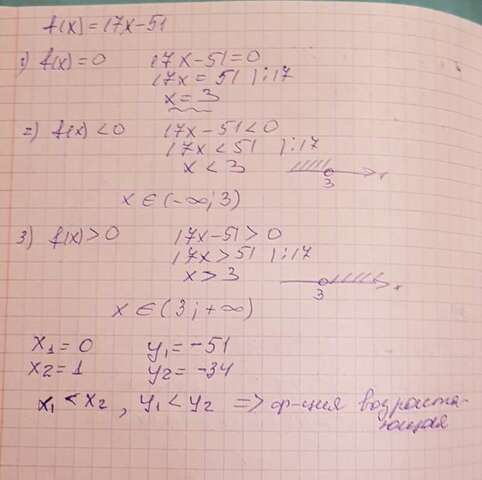 f(x)=17x-51
1) f(x)=0 17x-51=0
17x=51 |:17
x=3
2) f(x)<0 17x-51<0
17x<51 |:17
x<3
3 x
x∈(-∞;3)
3) f(x)>0 17x-51>0
17x>51 |:17
x>3
3 x
x∈(3;+∞)
x1=0 y1=-51
x2=1 y2=-34
x1<x2, y1<y2 => ф-ция возраста-
ющая